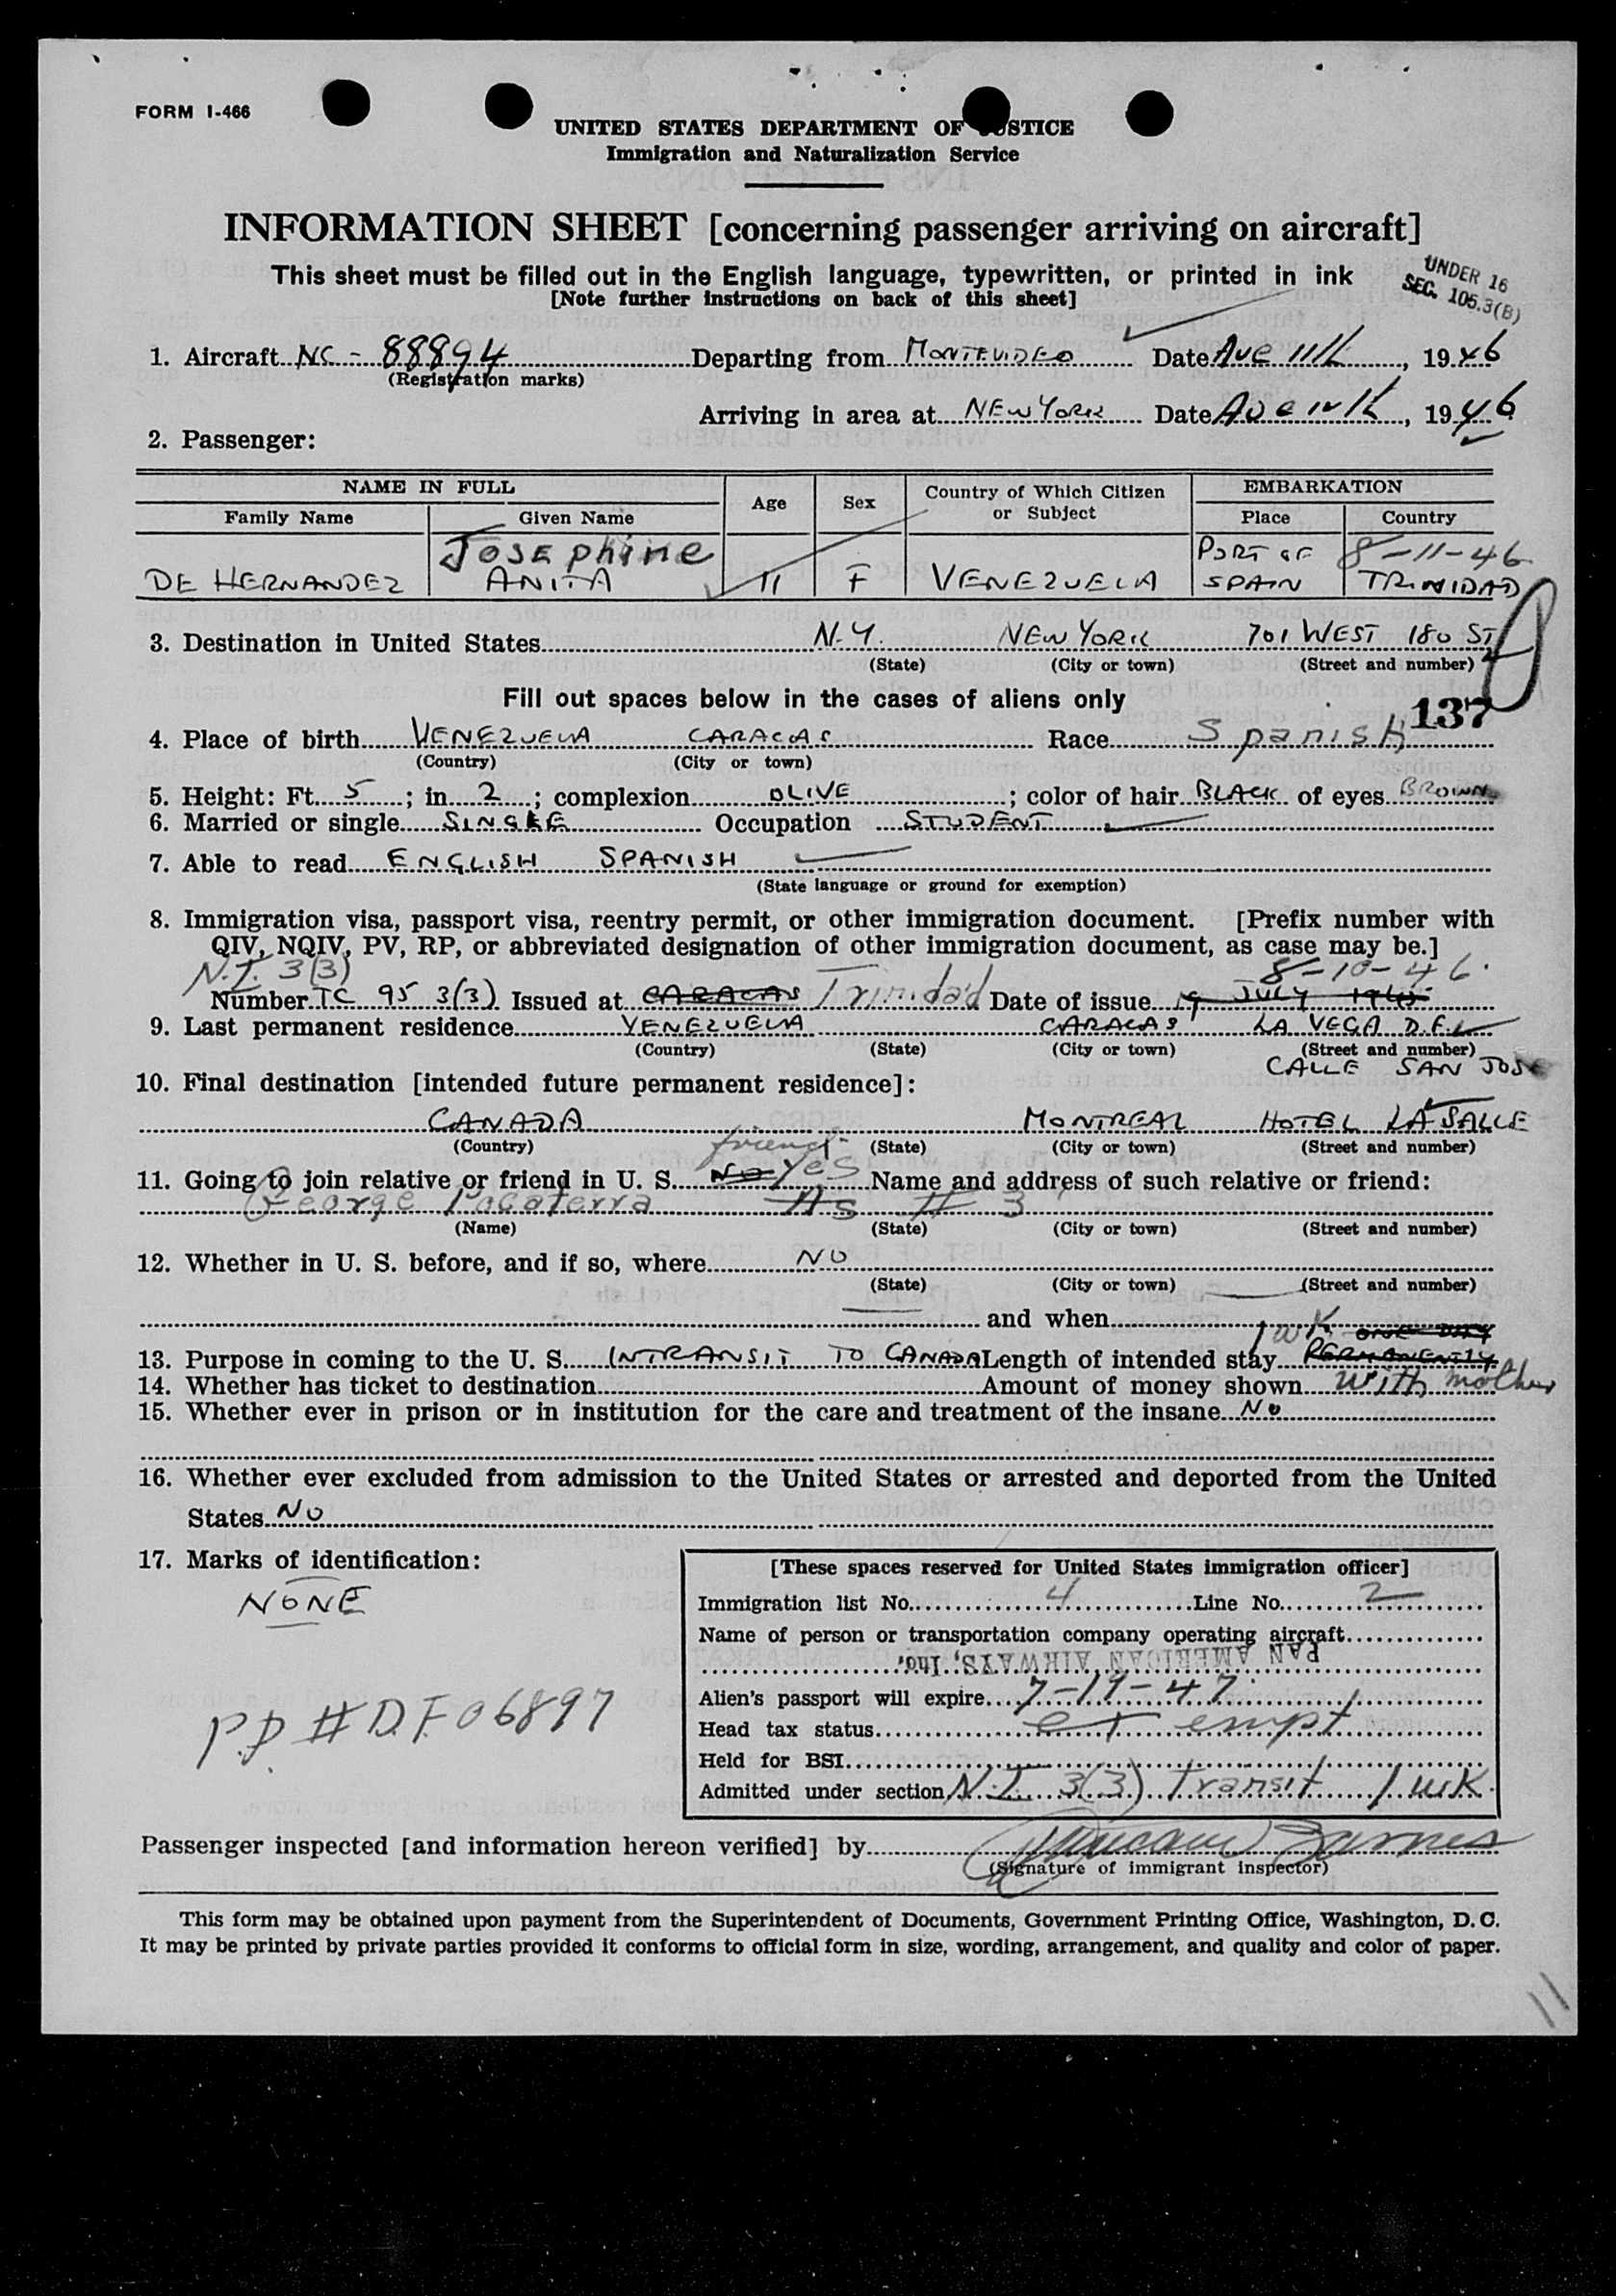 FORM I-466
UNITED STATES DEPARTMENT OF JUSTICE
Immigration and Naturalization Service
INFORMATION SHEET [concerning passenger arriving on aircraft]
This sheet must be filled out in the English language, typewritten, or printed in ink
[Note further instructions on back of this sheet]
UNDER 16
SEC. 105.3(B)
1. Aircraft NC - 88894 Departing from MONTEVIDEO Date AUG 11th, 1946
(Registration marks)
Arriving in area at NEW YORK Date AUG 12th, 1946
2. Passenger:
NAME IN FULL Age Sex Country of Which Citizen or Subject EMBARKATION
Family Name Given Name Place Country
Josephine PORT OF 8-11-46
DE HERNANDEZ ANITA 11 F VENEZUELA SPAIN TRINIDAD
3. Destination in United States N.Y. NEW YORK 701 WEST 180 ST
(State) (City or town) (Street and number)
Fill out spaces below in the cases of aliens only
137
4. Place of birth VENEZUELA CARACAS Race Spanish
(Country) (City or town)
5. Height: Ft. 5; in. 2; complexion OLIVE; color of hair BLACK of eyes BROWN
6. Married or single SINGLE Occupation STUDENT
7. Able to read ENGLISH SPANISH
(State language or ground for exemption)
8. Immigration visa, passport visa, reentry permit, or other immigration document. [Prefix number with
QIV, NQIV, PV, RP, or abbreviated designation of other immigration document, as case may be.]
N.I. 3(3) 8-10-46.
Number TC 95 3(3) Issued at CARACAS Trinidad Date of issue 19 JULY 1945
9. Last permanent residence VENEZUELA CARACAS LA VEGA D.F.
(Country) (State) (City or town) (Street and number)
CALLE SAN JOSE
10. Final destination [intended future permanent residence]:
CANADA MONTREAL HOTEL LA SALLE
(Country) (State) (City or town) (Street and number)
friend
11. Going to join relative or friend in U. S. NO Yes Name and address of such relative or friend:
George Pocaterra As # 3
(Name) (State) (City or town) (Street and number)
12. Whether in U. S. before, and if so, where NO
(State) (City or town) (Street and number)
and when
1 wk ONE DAY
13. Purpose in coming to the U. S. INTRANSIT TO CANADA Length of intended stay PERMANENTLY
14. Whether has ticket to destination Amount of money shown with mother
15. Whether ever in prison or in institution for the care and treatment of the insane NO
16. Whether ever excluded from admission to the United States or arrested and deported from the United
States NO
17. Marks of identification:
NONE
P.P. # D.F. 06897
[These spaces reserved for United States immigration officer]
Immigration list No. 4 Line No. 2
Name of person or transportation company operating aircraft
PAN AMERICAN AIRWAYS, Inc.
Alien's passport will expire 7-19-47.
Head tax status exempt
Held for BSI
Admitted under section N.I. 3(3) Transit 1 wk.
Passenger inspected [and information hereon verified] by
(Signature of immigrant inspector)
This form may be obtained upon payment from the Superintendent of Documents, Government Printing Office, Washington, D. C.
It may be printed by private parties provided it conforms to official form in size, wording, arrangement, and quality and color of paper.
11